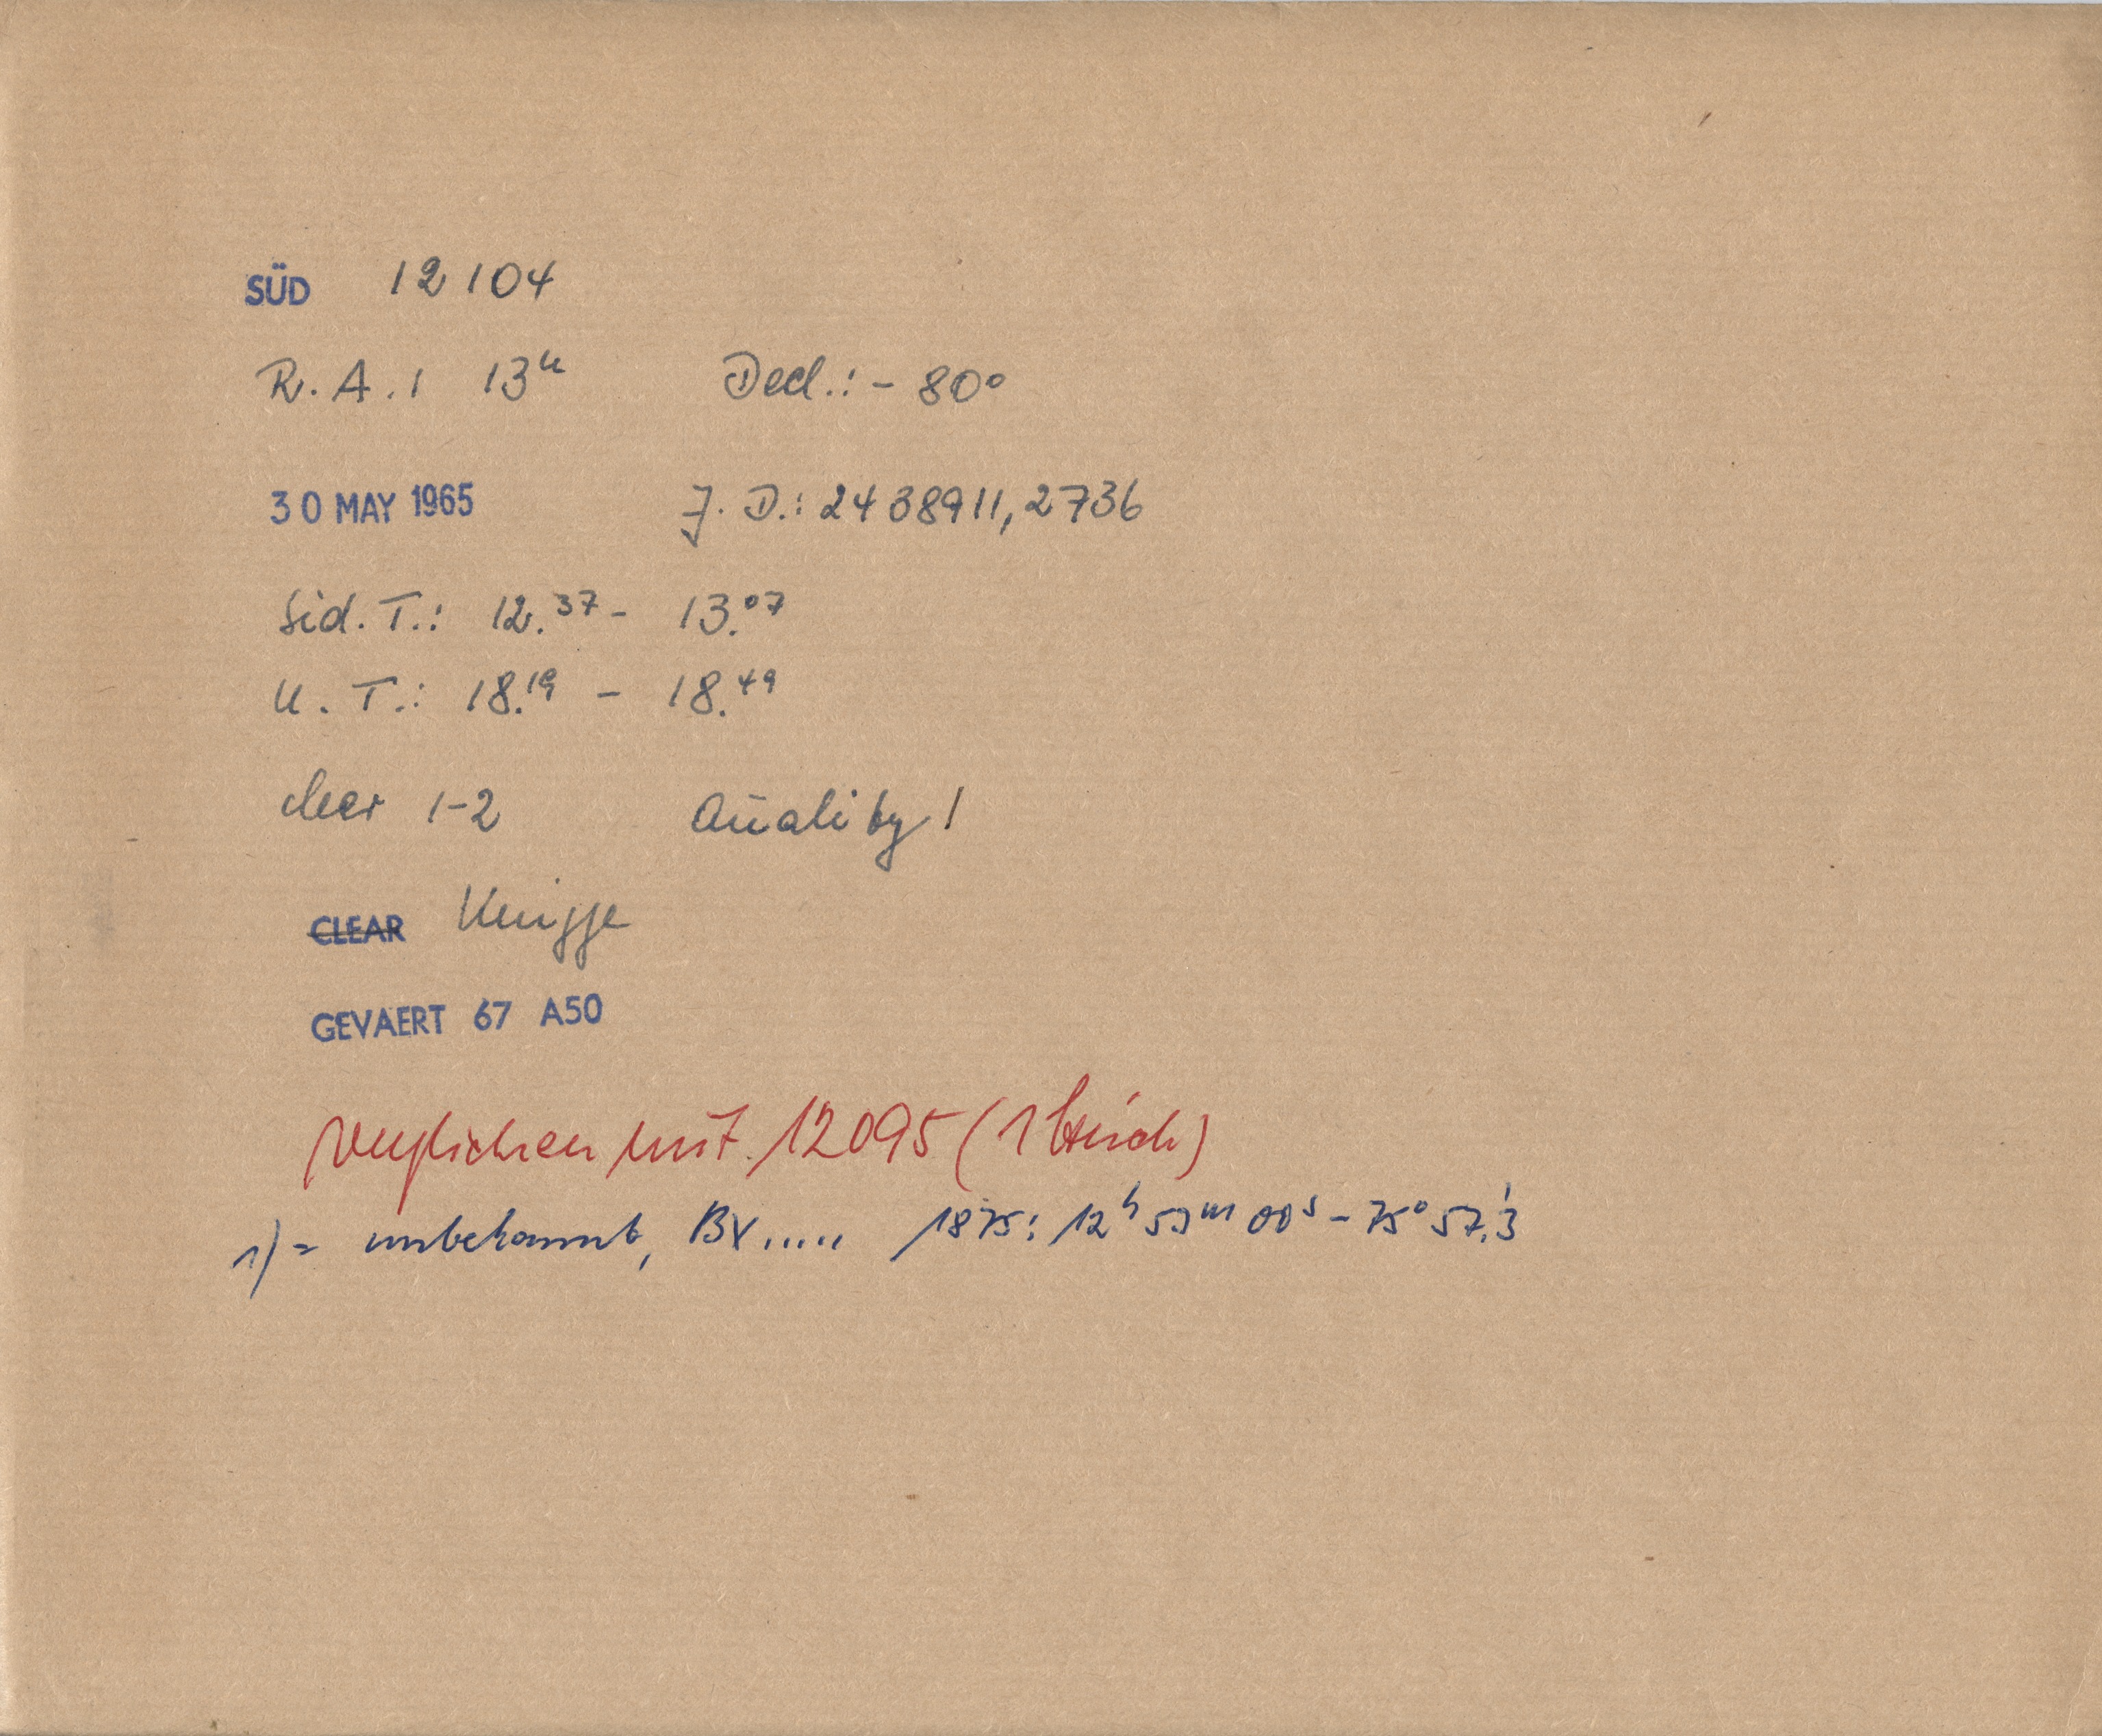 SÜD 12104
R.A.: 13h Decl.: - 80°
30 MAY 1965 J.D.: 2438911,2736
Sid. T.: 12.37 - 13.07
U.T.: 18.19 - 18.49
clear 1-2 Quality 1
CLEAR Knigge
GEVAERT 67 A50
verglichen mit 12095 (1 Strich)
1) = unbekannt, BV..... 1875: 12h 59m 00s - 75° 57.'3